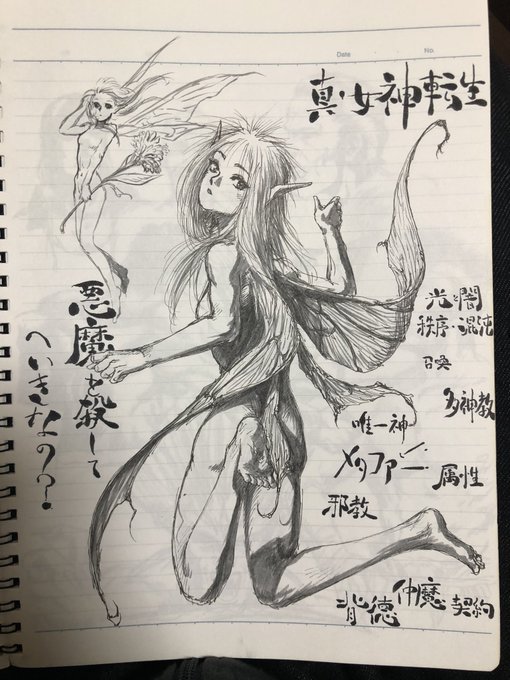 Date
No.
真・女神転生
光と闇
秩序・混沌
召喚
多神教
唯一神
メタファー
属性
邪教
背徳
仲魔
契約
悪魔を殺して
へいきなの?